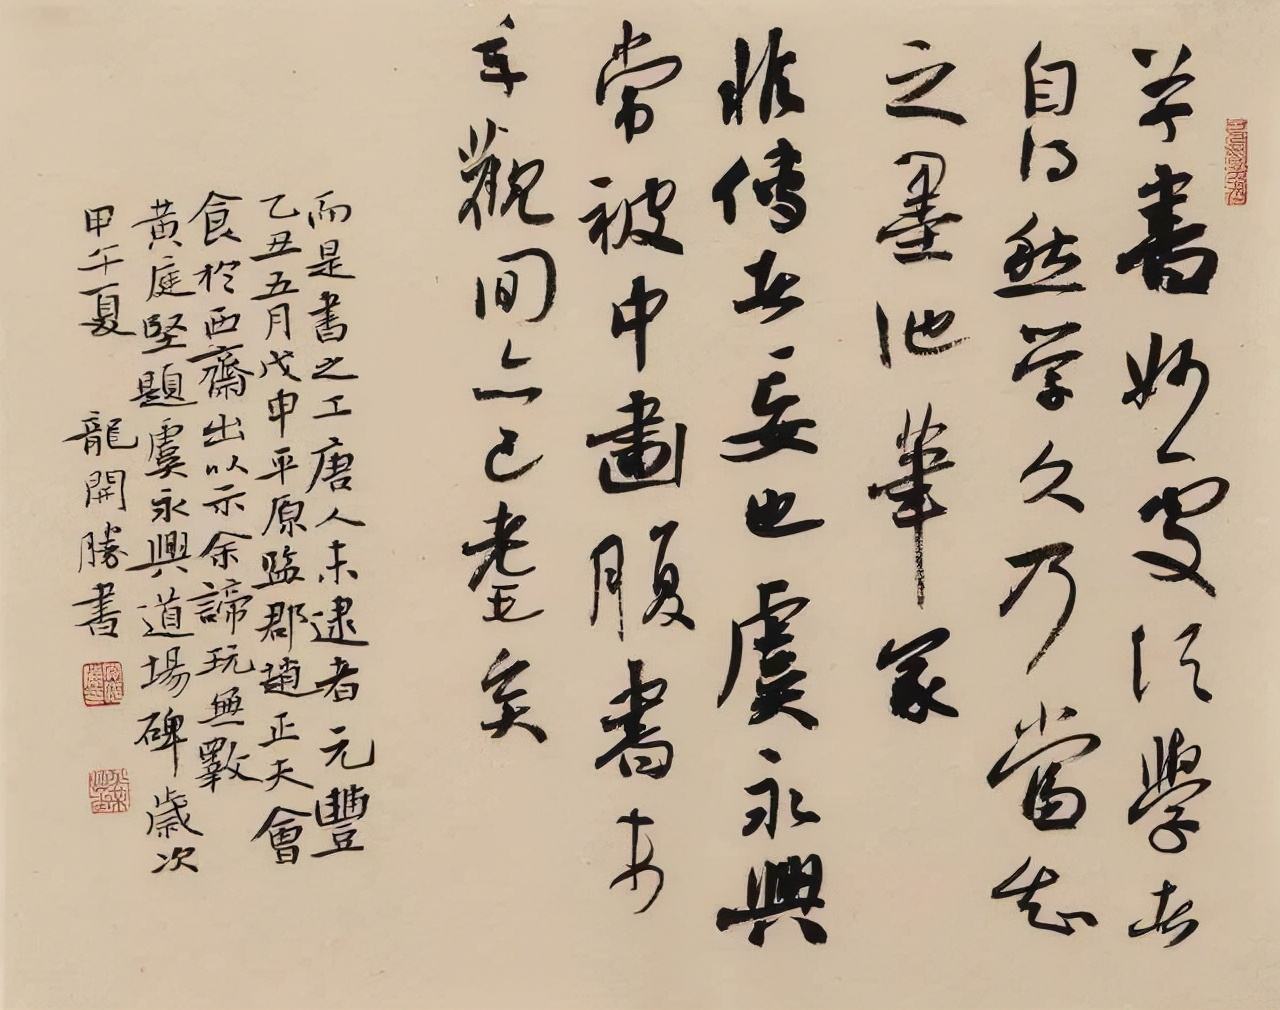 草書妙處須學者
自得然学久乃當知
之墨池筆冢
非傳者妄也虞永興
常被中畫腹書末
年觀間亦已耋矣
而是書之工唐人未逮者元豐
乙丑五月戊申平原監郡趙正夫會
食於西齋出以示余諦玩無斁
黃庭堅題虞永興道場碑歲次
甲午夏 龍開勝書